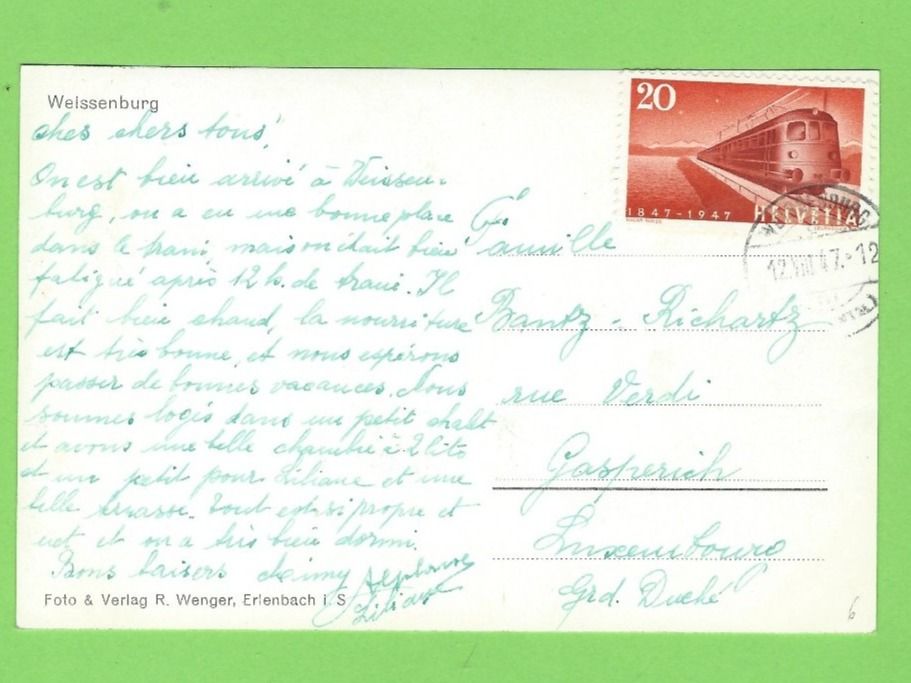 Weissenburg
chers tous!
On est bien arrivé à Weissen-
burg, on a eu une bonne place
dans le train, mais on était bien
fatigué après 12 h. de train. Il
fait bien chaud, la nourriture
est très bonne, et nous espérons
passer de bonnes vacances. Nous
sommes logés dans un petit chalet
et avons une belle chambre à 2 lits
et un petit pour Liliane et une
belle terrasse. Tout est si propre et
net et on a très bien dormi.
Bons baisers
Liliane
Foto & Verlag R. Wenger, Erlenbach i. S
20
1847-1947 HELVETIA
WEISSENBURG
12.VIII.47.-12
Famille
Bantz - Richartz
rue Verdi
Gasperich
Luxembourg
Grd. Duché
6